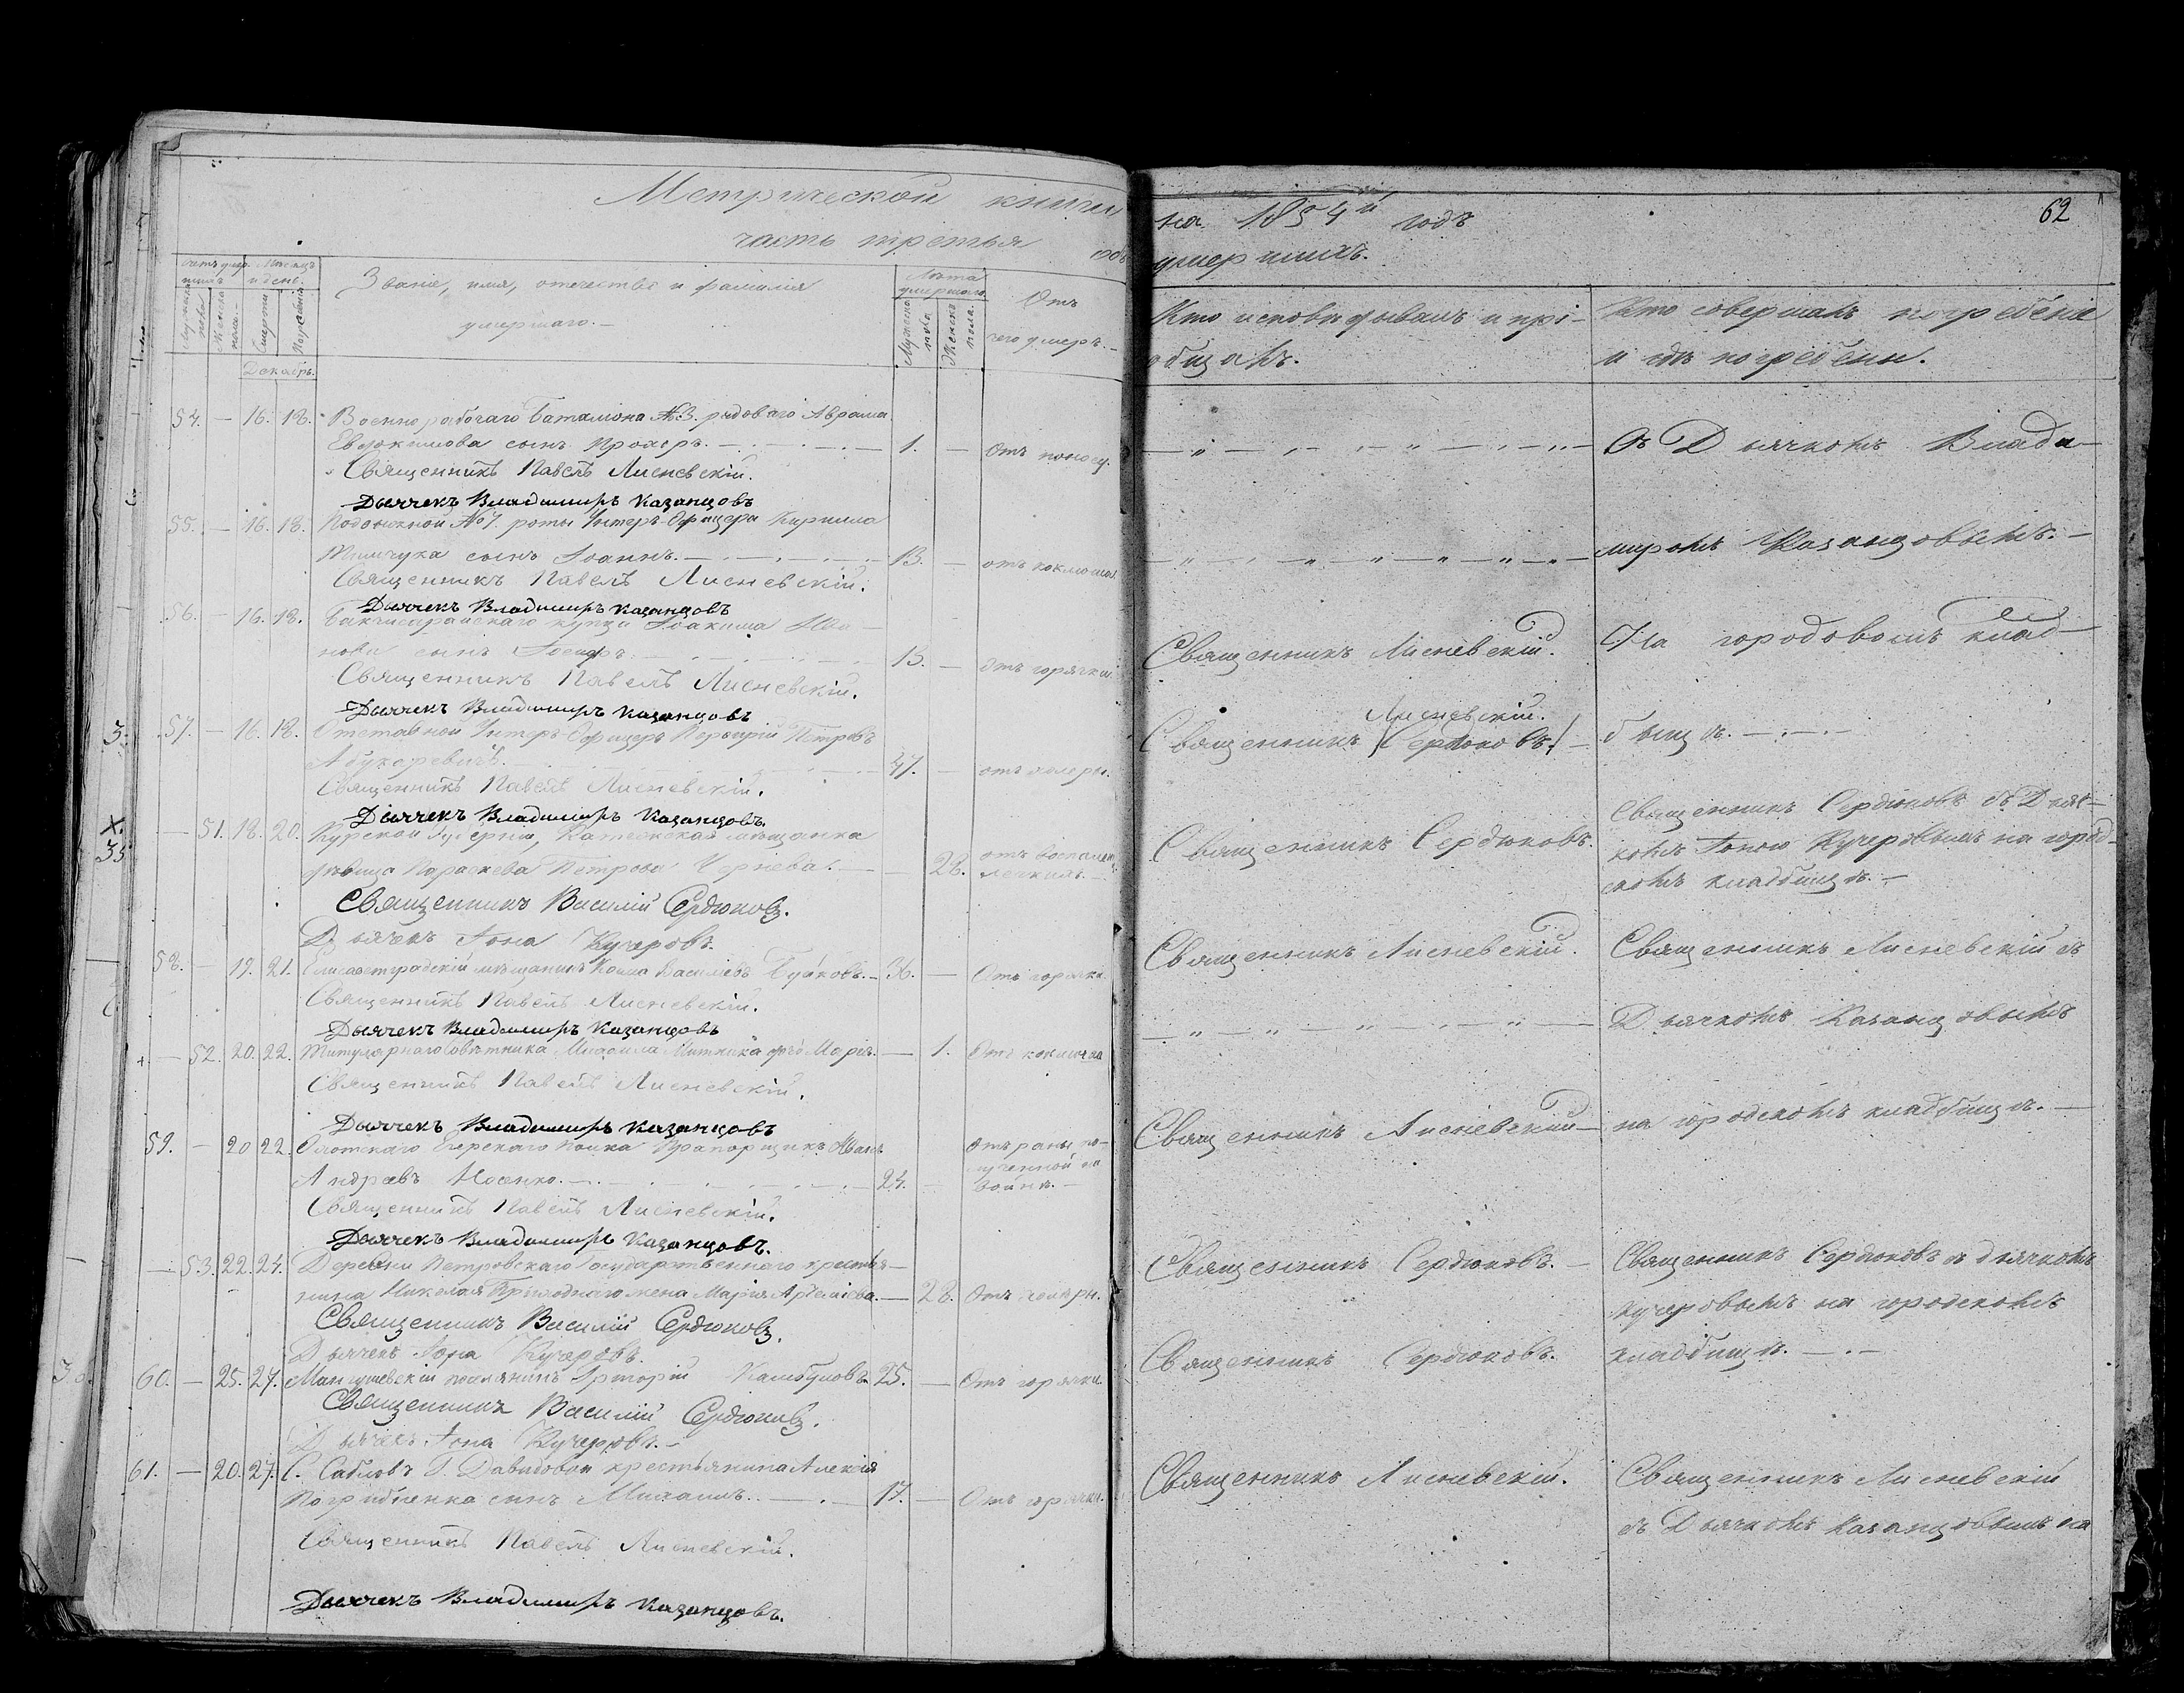 Метрической книги
часть третья
на 1854й годъ
умершихъ.
62
Счетъ умер-
шихъ
Мужеска
пола
Женска
пола.
Мѣсяцъ
и день.
Смерти
Погребенія
Званіе, имя, отчество и фамилія
умершаго.
Лѣта
умершаго.
Мужеска
пола
Женска
пола.
Отъ
чего умеръ.
Кто исповѣдывалъ и прі-
общалъ.
Кто совершалъ погребеніе
и гдѣ погребены.
Декабрь.
54. — 16. 18. Военно рабочаго баталіона №3. рядоваго Аврама
Евдокимова сынъ Прохоръ. — 1. — отъ поносу.
Съ Дьячкомъ Влади-
Священникъ Павелъ Лисневскій.
Дьячекъ Владимиръ Казанцовъ
55. — 16. 18. Подвижной №7. роты Унтеръ-Офицера Кирилла
сынъ Іоаннъ. — 13. — отъ коклюша.
миромъ Казанцовымъ. —
Священникъ Павелъ Лисневскій.
Дьячекъ Владимиръ Казанцовъ
56. — 16. 18. Бакчисарайскаго купца Іоакима
нова сынъ — 13. — отъ горячки.
Священникъ Лисневскій.
На городовомъ клад-
Священникъ Павелъ Лисневскій.
Дьячекъ Владимиръ Казанцовъ
57. — 16. 18. Отставной Унтеръ-Офицеръ Петровъ
47. — отъ холеры.
Лисневскій.
Священникъ (Сердюковъ.) —
бищѣ. —
Священникъ Павелъ Лисневскій.
Дьячекъ Владимиръ Казанцовъ.
— 51. 18. 20. Курской Губерніи, мѣщанка
дѣвица Параскева Петрова — 22. отъ воспален.
легкихъ. —
Священникъ Сердюковъ.
Священникъ Сердюковъ съ Дьяч-
комъ Іоною Кучеровымъ на город-
скомъ кладбищѣ. —
Священникъ Василій Сердюковъ.
Дьячекъ Іона Кучеровъ.
58. — 19. 21. Елисаветградскій мѣщанинъ Косма Васильевъ — 36. — Отъ горячки
Священникъ Лисневскій.
Священникъ Лисневскій съ
Священникъ Павелъ Лисневскій.
Дьячекъ Владимиръ Казанцовъ
— 52. 20. 22. Титулярнаго Совѣтника Михаила дочь Марія. — 1. Отъ коклюша
Дьячкомъ Казанцовымъ
Священникъ Павелъ Лисневскій.
Дьячекъ Владимиръ Казанцовъ
59. — 20 22. Охотскаго Егерскаго Полка Прапорщикъ Иванъ
Андреевъ Носенко. — 24. — Отъ раны по-
лученной на
войнѣ. —
Священникъ Лисневскій —
на городскомъ кладбищѣ. —
Священникъ Павелъ Лисневскій.
Дьячекъ Владимиръ Казанцовъ.
— 53. 22. 24. Деревни Петровскаго Государственнаго крестья-
нина Николая жена Марія — 28. Отъ холеры.
Священникъ Сердюковъ. —
Священникъ Сердюковъ съ дьячкомъ
Кучеровымъ на городскомъ
кладбищѣ. —
Священникъ Василій Сердюковъ.
Дьячекъ Іона Кучеровъ.
60. — 25. 27. поселянинъ Григорій 25. — Отъ горячки.
Священникъ Сердюковъ.
Священникъ Василій Сердюковъ.
Дьячекъ Іона Кучеровъ. —
61. — 20. 27. С. Сабловъ Г. Давыдовой крестьянина Алексія
сынъ Михаилъ. — 17. — Отъ горячки.
Священникъ Лисневскій.
Священникъ Лисневскій
съ Дьячкомъ Казанцовымъ на
Священникъ Павелъ Лисневскій.
Дьячекъ Владимиръ Казанцовъ.